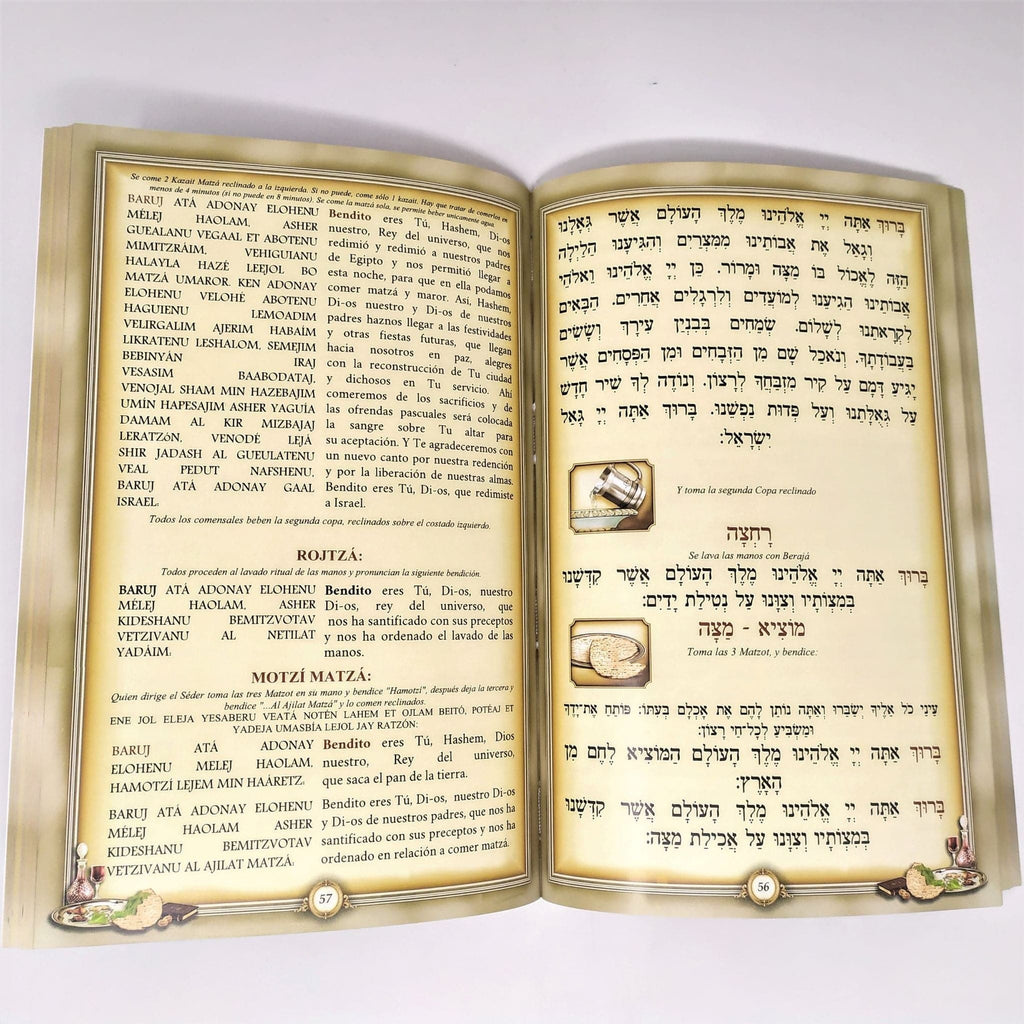 בָּרוּךְ אַתָּה יְיָ אֱלֹהֵינוּ מֶלֶךְ הָעוֹלָם אֲשֶׁר גְּאָלָנוּ
וְגָאַל אֶת אֲבוֹתֵינוּ מִמִּצְרַיִם וְהִגִּיעָנוּ הַלַּיְלָה
הַזֶּה לֶאֱכוֹל בּוֹ מַצָּה וּמָרוֹר. כֵּן יְיָ אֱלֹהֵינוּ וֵאלֹהֵי
אֲבוֹתֵינוּ הַגִּיעֵנוּ לְמוֹעֲדִים וְלִרְגָלִים אֲחֵרִים. הַבָּאִים
לִקְרָאתֵנוּ לְשָׁלוֹם. שְׂמֵחִים בְּבִנְיַן עִירֶךָ וְשָׂשִׂים
בַּעֲבוֹדָתֶךָ. וְנֹאכַל שָׁם מִן הַזְּבָחִים וּמִן הַפְּסָחִים אֲשֶׁר
יַגִּיעַ דָּמָם עַל קִיר מִזְבַּחֲךָ לְרָצוֹן. וְנוֹדֶה לְךָ שִׁיר חָדָשׁ
עַל גְּאֻלָּתֵנוּ וְעַל פְּדוּת נַפְשֵׁנוּ. בָּרוּךְ אַתָּה יְיָ גָּאַל
יִשְׂרָאֵל:
Y toma la segunda Copa reclinado
רָחְצָה
Se lava las manos con Berajá
בָּרוּךְ אַתָּה יְיָ אֱלֹהֵינוּ מֶלֶךְ הָעוֹלָם אֲשֶׁר קִדְּשָׁנוּ
בְּמִצְוֹתָיו וְצִוָּנוּ עַל נְטִילַת יָדַיִם:
מוֹצִיא - מַצָּה
Toma las 3 Matzot, y bendice:
עֵינֵי כֹל אֵלֶיךָ יְשַׂבֵּרוּ וְאַתָּה נוֹתֵן לָהֶם אֶת אָכְלָם בְּעִתּוֹ: פּוֹתֵחַ אֶת־יָדֶךָ
וּמַשְׂבִּיעַ לְכָל־חַי רָצוֹן:
בָּרוּךְ אַתָּה יְיָ אֱלֹהֵינוּ מֶלֶךְ הָעוֹלָם הַמּוֹצִיא לֶחֶם מִן
הָאָרֶץ:
בָּרוּךְ אַתָּה יְיָ אֱלֹהֵינוּ מֶלֶךְ הָעוֹלָם אֲשֶׁר קִדְּשָׁנוּ
בְּמִצְוֹתָיו וְצִוָּנוּ עַל אֲכִילַת מַצָּה:
56
Se come 2 Kazait Matzá reclinado a la izquierda. Si no puede, come sólo 1 kazait. Hay que tratar de comerlos en
menos de 4 minutos (si no puede en 8 minutos). Se come la matzá sola, se permite beber unicamente agua.
BARUJ ATÁ ADONAY ELOHENU
MÉLEJ HAOLAM, ASHER
GUEALANU VEGAAL ET ABOTENU
MIMITZRÁIM, VEHIGUIANU
HALAYLA HAZÉ LEEJOL BO
MATZÁ UMAROR. KEN ADONAY
ELOHENU VELOHÉ ABOTENU
HAGUIENU LEMOADIM
VELIRGALIM AJERIM HABAÍM
LIKRATENU LESHALOM, SEMEJIM
BEBINYÁN IRAJ
VESASIM BAABODATAJ,
VENOJAL SHAM MIN HAZEBAJIM
UMÍN HAPESAJIM ASHER YAGUÍA
DAMAM AL KIR MIZBAJAJ
LERATZÓN, VENODÉ LEJÁ
SHIR JADASH AL GUEULATENU
VEAL PEDUT NAFSHENU,
BARUJ ATÁ ADONAY GAAL
ISRAEL:
Bendito eres Tú, Hashem, Di-os
nuestro, Rey del universo, que nos
redimió y redimió a nuestros padres
de Egipto y nos permitió llegar a
esta noche, para que en ella podamos
comer matzá y maror. Así, Hashem,
Di-os nuestro y Di-os de nuestros
padres haznos llegar a las festividades
y otras fiestas futuras, que llegan
hacia nosotros en paz, alegres
con la reconstrucción de Tu ciudad
y dichosos en Tu servicio. Ahí
comeremos de los sacrificios y de
las ofrendas pascuales será colocada
la sangre sobre Tu altar para
su aceptación. Y Te agradeceremos con
un nuevo canto por nuestra redención
y por la liberación de nuestras almas.
Bendito eres Tú, Di-os, que redimiste
a Israel.
Todos los comensales beben la segunda copa, reclinados sobre el costado izquierdo.
ROJTZÁ:
Todos proceden al lavado ritual de las manos y pronuncian la siguiente bendición.
BARUJ ATÁ ADONAY ELOHENU
MÉLEJ HAOLAM, ASHER
KIDESHANU BEMITZVOTAV
VETZIVANU AL NETILAT
YADÁIM:
Bendito eres Tú, Di-os, nuestro
Di-os, rey del universo, que
nos ha santificado con sus preceptos
y nos ha ordenado el lavado de las
manos.
MOTZÍ MATZÁ:
Quien dirige el Séder toma las tres Matzot en su mano y bendice "Hamotzí", después deja la tercera y
bendice "...Al Ajilat Matzá" y lo comen reclinados.
ENE JOL ELEJA YESABERU VEATÁ NOTÉN LAHEM ET OJLAM BEITÓ, POTÉAJ ET
YADEJA UMASBÍA LEJOL JAY RATZÓN:
BARUJ ATÁ ADONAY
ELOHENU MELEJ HAOLAM,
HAMOTZÍ LEJEM MIN HAÁRETZ:
Bendito eres Tú, Hashem, Dios
nuestro, Rey del universo,
que saca el pan de la tierra.
BARUJ ATÁ ADONAY ELOHENU
MÉLEJ HAOLAM ASHER
KIDESHANU BEMITZVOTAV
VETZIVANU AL AJILAT MATZÁ:
Bendito eres Tú, Di-os, nuestro Di-os
y Di-os de nuestros padres, que nos ha
santificado con sus preceptos y nos ha
ordenado en relación a comer matzá.
57